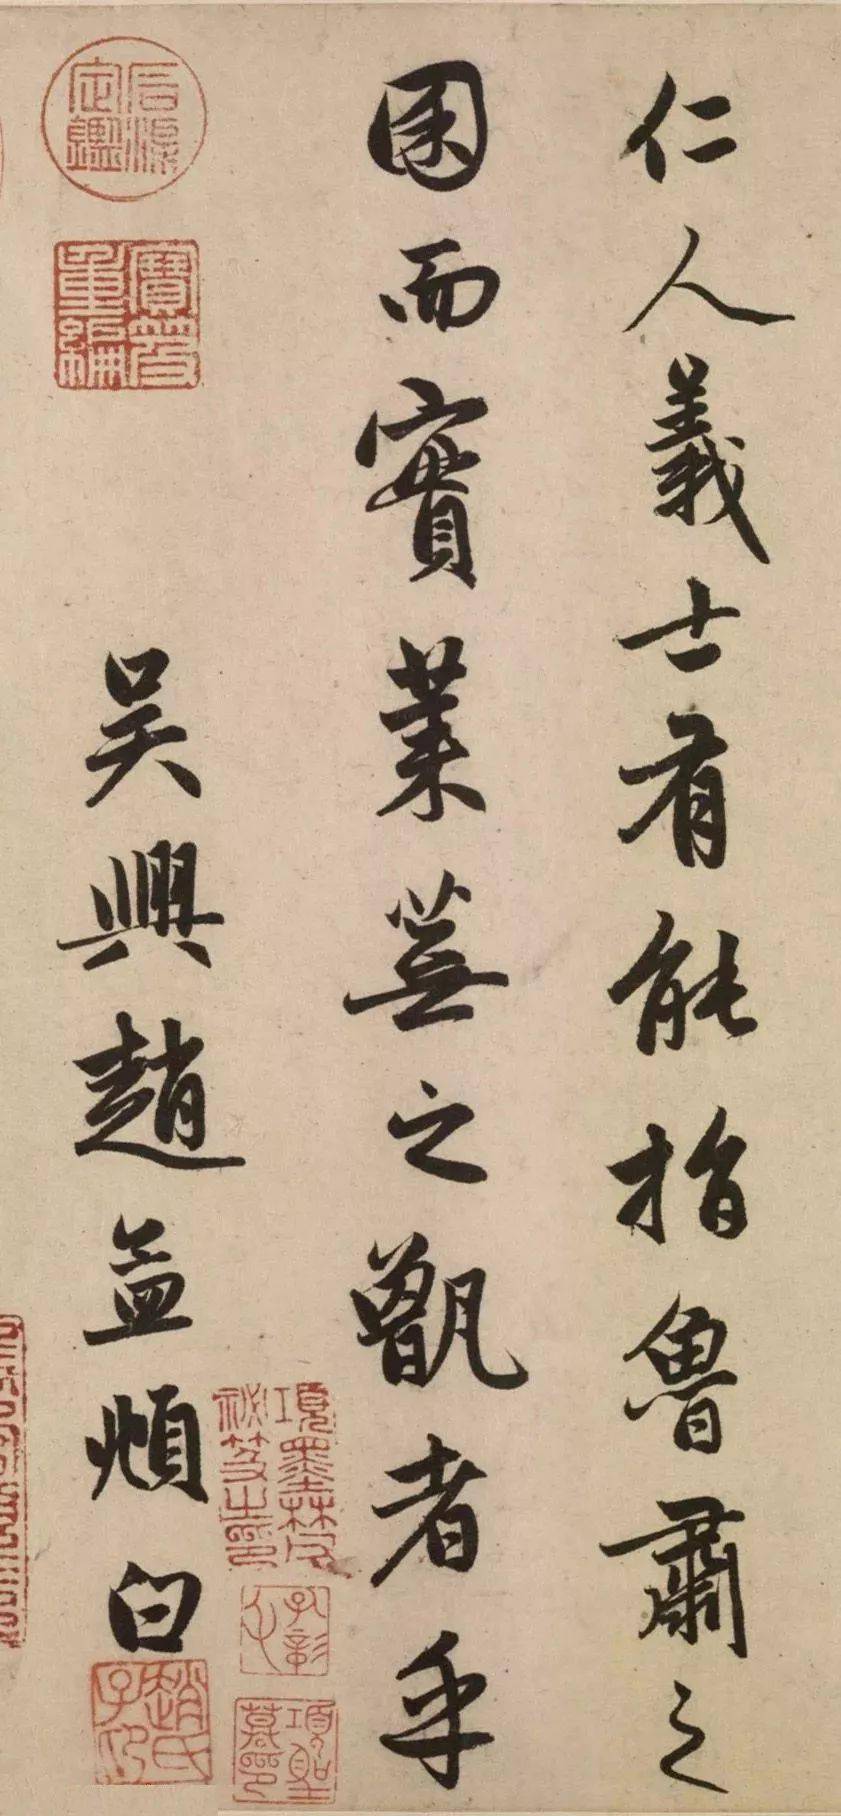 仁人義士有能指魯肅之
囷而實萊蕪之甑者乎
吳興趙孟頫白
石渠定鑑
寶笈重編
項墨林父祕笈之印
子彰
趙氏子昂